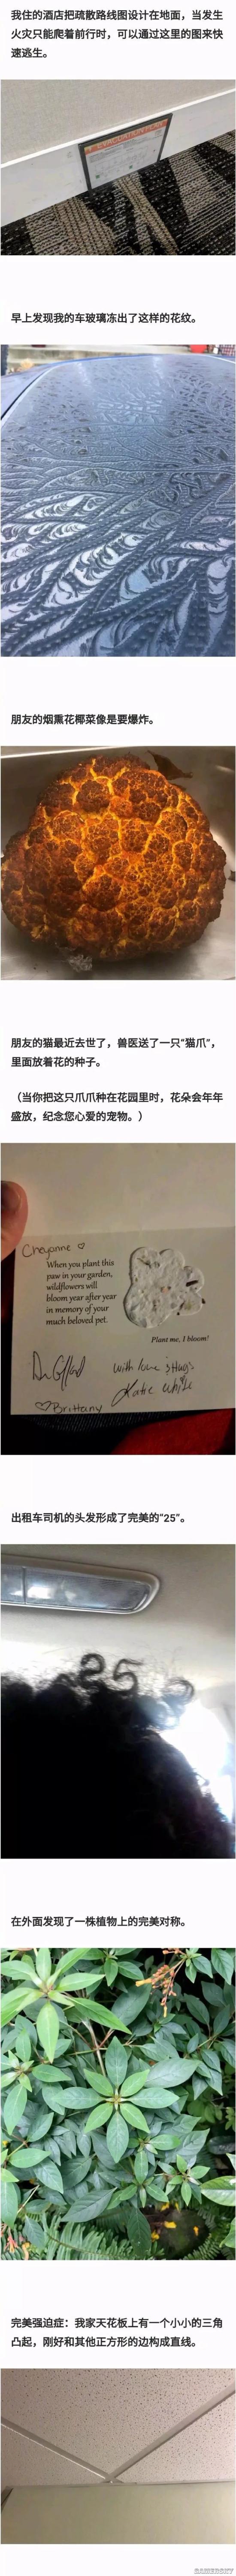 我住的酒店把疏散路线图设计在地面，当发生
火灾只能爬着前行时，可以通过这里的图来快
速逃生。
早上发现我的车玻璃冻出了这样的花纹。
朋友的烟熏花椰菜像是要爆炸。
朋友的猫最近去世了，兽医送了一只“猫爪”，
里面放着花的种子。
（当你把这只爪爪种在花园里时，花朵会年年
盛放，纪念您心爱的宠物。）
Cheyonne ♡
When you plant this
paw in your garden,
wildflowers will
bloom year after year
in memory of your
much beloved pet.
Plant me, I bloom!
with love & Hugs
Katie White
♡Brittany
出租车司机的头发形成了完美的“25”。
25
在外面发现了一株植物上的完美对称。
完美强迫症：我家天花板上有一个小小的三角
凸起，刚好和其他正方形的边构成直线。
GAMERSKY